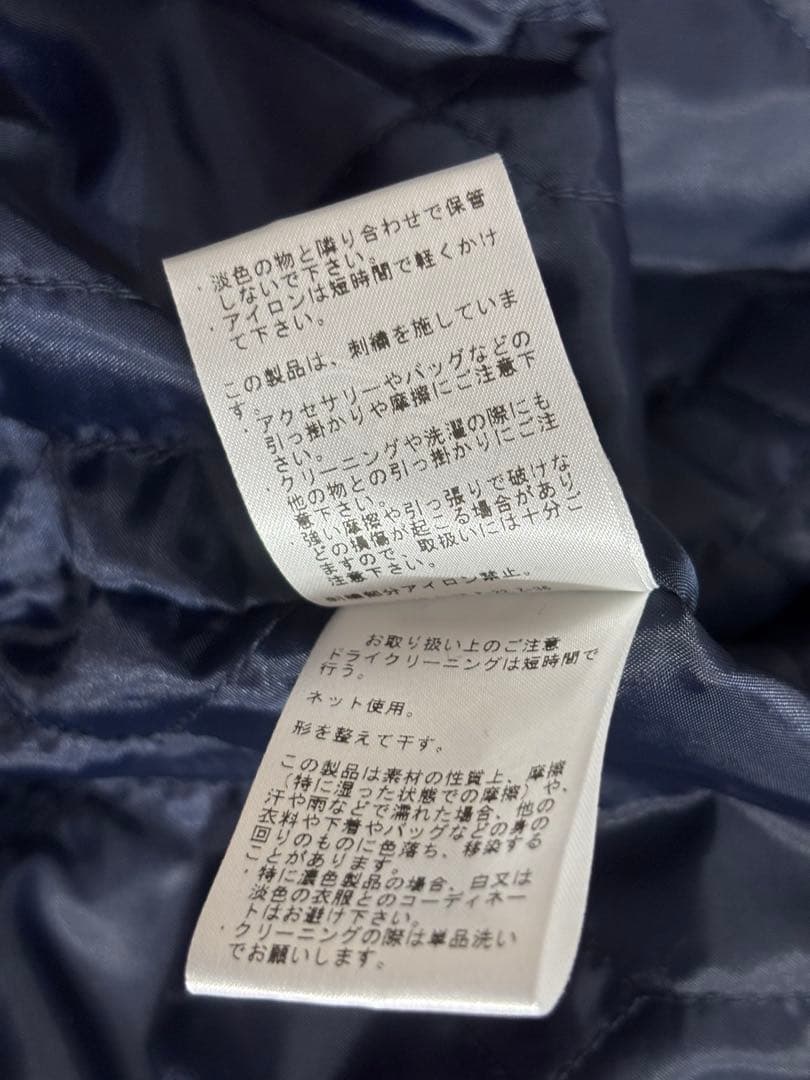 ・淡色の物と隣り合わせで保管
しないで下さい。
・アイロンは短時間で軽くかけ
て下さい。
この製品は、刺繍を施していま
す。
・アクセサリーやバッグなどの
引っ掛かりや摩擦にご注意下
さい。
・クリーニングや洗濯の際にも
他の物との引っ掛かりにご注
意下さい。
・強い摩擦や引っ張りで破けな
どの損傷が起こる場合があり
ますので、取扱いには十分ご
注意下さい。
刺繍部分アイロン禁止。
お取り扱い上のご注意
ドライクリーニングは短時間で
行う。
ネット使用。
形を整えて干す。
この製品は素材の性質上、摩擦
（特に湿った状態での摩擦）や、
汗や雨などで濡れた場合、他の
衣料や下着やバッグなどの身の
回りのものに色落ち、移染する
ことがあります。
・特に濃色製品の場合、白又は
淡色の衣服とのコーディネー
トはお避け下さい。
・クリーニングの際は単品洗い
でお願いします。